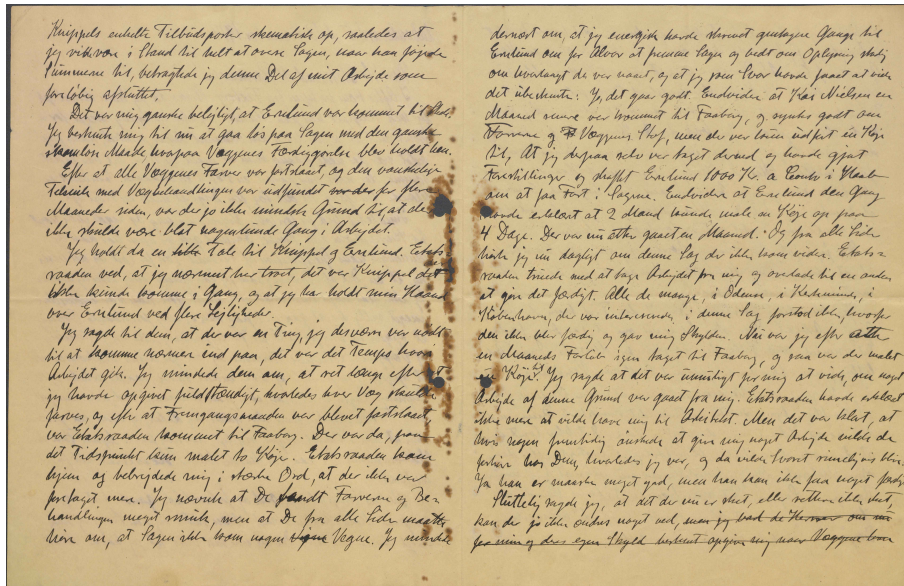 Knippels enkelte Tilbudsposter skematisk op, saaledes at
jeg vilde være i Stand til helt at overse Sagen, naar han föjede
Summerne til, betragtede jeg denne Del af mit Arbejde som
foreløbig afsluttet.
Det var mig ganske belejligt, at Enslund var kommet til Sted.
Jeg besluttede mig til nu at gaa løs paa Sagen med den ganske
Maade hvorpaa Væggenes Færdiggørelse blev holdt hen.
Efter at alle Væggenes Farver var fastslaaet, og den vanskelige
Teknik med Vægbehandlingen var udfundet for flere
Maaneder siden, var der jo ikke mindste Grund til, at der
ikke skulde være blot nogenlunde Gang i Arbejdet.
Jeg holdt da en Tale til Knippel og Enslund. Etats-
raaden ved, at jeg nærmest har troet, det var Knippel det
ikke kunde komme i Gang, og at jeg har holdt min Haand
over Enslund ved flere Lejligheder.
Jeg sagde til dem, at der var en Ting, jeg desværre var nødt
til at komme nærmere ind paa, det var det Tempo hvori
Arbejdet gik. Jeg mindede dem om, at ret længe efter at
jeg havde opgivet fuldstændigt, hvorledes hver Væg skulde
farves, og efter at Fremgangsmaaden var blevet fastslaaet
var Etatsraaden kommet til Faaborg. Der var da, paa
det Tidspunkt kun malet to Køje. Etatsraaden kom
hjem og bebrejdede mig i stærke Ord, at der ikke var
foretaget mere. Jeg nævnte at De fandt Farverne og Be-
handlingen meget smuk, men at De fra alle Sider maatte
høre om, at Sagen ikke kom nogen Vegne. Jeg mindede
dernæst om, at jeg energisk havde skrevet gentagne Gange til
Enslund om for Alvor at fremme Sagen og bedt om Oplysning stadig
om hvorlangt de var naaet, og at jeg som Svar havde faaet at vide
det ubestemte: Jo, det gaar godt. Endvidere at Kai Nielsen en
Maaned senere var kommet til Faaborg, og syntes godt om
Farverne og Væggenes Stof, men der var kun udført en Køje
til, At jeg derpaa selv var taget derned og havde gjort
Forestillinger og skaffet Enslund 1000 Kr. a Conto i Haab
om at faa Fart i Sagen. Endvidere at Enslund den Gang
havde erklæret at 2 Mand kunde male en Køje op paa
4 Dage. Der var nu atter gaaet en Maaned. Og fra alle Sider
hørte jeg nu dagligt om denne Sag der ikke kom videre. Etats-
raaden truede med at tage Arbejdet fra mig og overlade til en anden
at gøre det færdigt. Alle de mange, i Odense, i Kerteminde, i
København, der var interesserede i denne Sag forstod ikke, hvorfor
den ikke blev færdig og gav mig Skylden. Nu var jeg efter atter
en Maaneds Forløb igen taget til Faaborg, og saa var der malet
Køje! Jeg sagde at det var umuligt for mig at vide, om noget
Arbejde af denne Grund var gaaet fra mig. Etatsraaden havde erklæret
ikke mere at ville have mig til Arkitekt. Men det var klart, at
hvis nogen fremtidig ønskede at give mig noget Arbejde vilde de
forhøre hos Dem, hvorledes jeg var, og da vilde Svaret rimeligvis blive
Ja han er maaske meget god, men han kan ikke faa noget færdigt
Sluttelig sagde jeg, at det der nu er sket, eller rettere ikke sket,
kan der jo ikke ændres noget ved, men jeg bad de Herrer om nu
for min og deres egen Skyld bestemt opgive mig naar Væggene kan